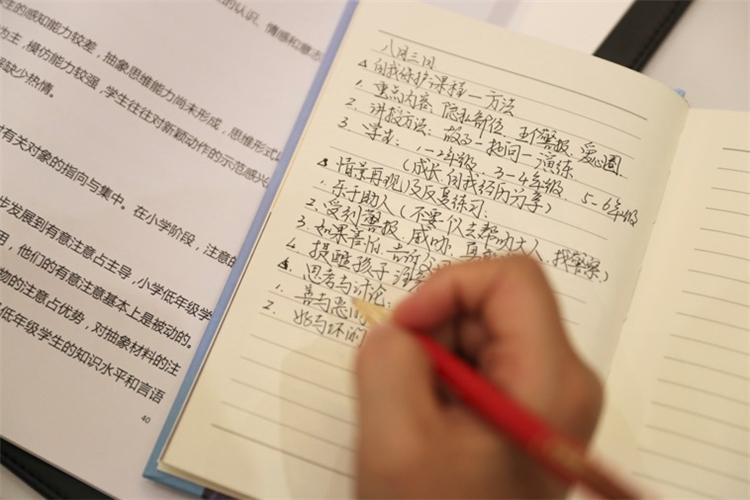 的认识、情感和意志
生的感知能力较差，抽象思维能力尚未形成，思维形式以
为主，模仿能力较强，学生往往对新颖动作的示范感兴
缺少热情。
对有关对象的指向与集中。在小学阶段，注意的
步发展到有意注意占主导，小学低年级学
用，他们的有意注意基本上是被动的。
物的注意占优势，对抽象材料的注
低年级学生的知识水平和言语
40
八月三日
自我保护课程一方法
1. 重点内容、隐私部位、五个警报、爱心圈
2. 讲授方法：故事一提问一演练
3. 学生：1-2年级、3-4年级、5-6年级
(成长、自我经历分享)
情景再现)及反复练习：
1. 乐于助人(不要你去帮助大人、找警察)
2. 受到警报、威吓、
3. 如果害怕、告诉
4. 提醒孩子
思考与讨论：
1. 善与恶的
2. 好与坏的